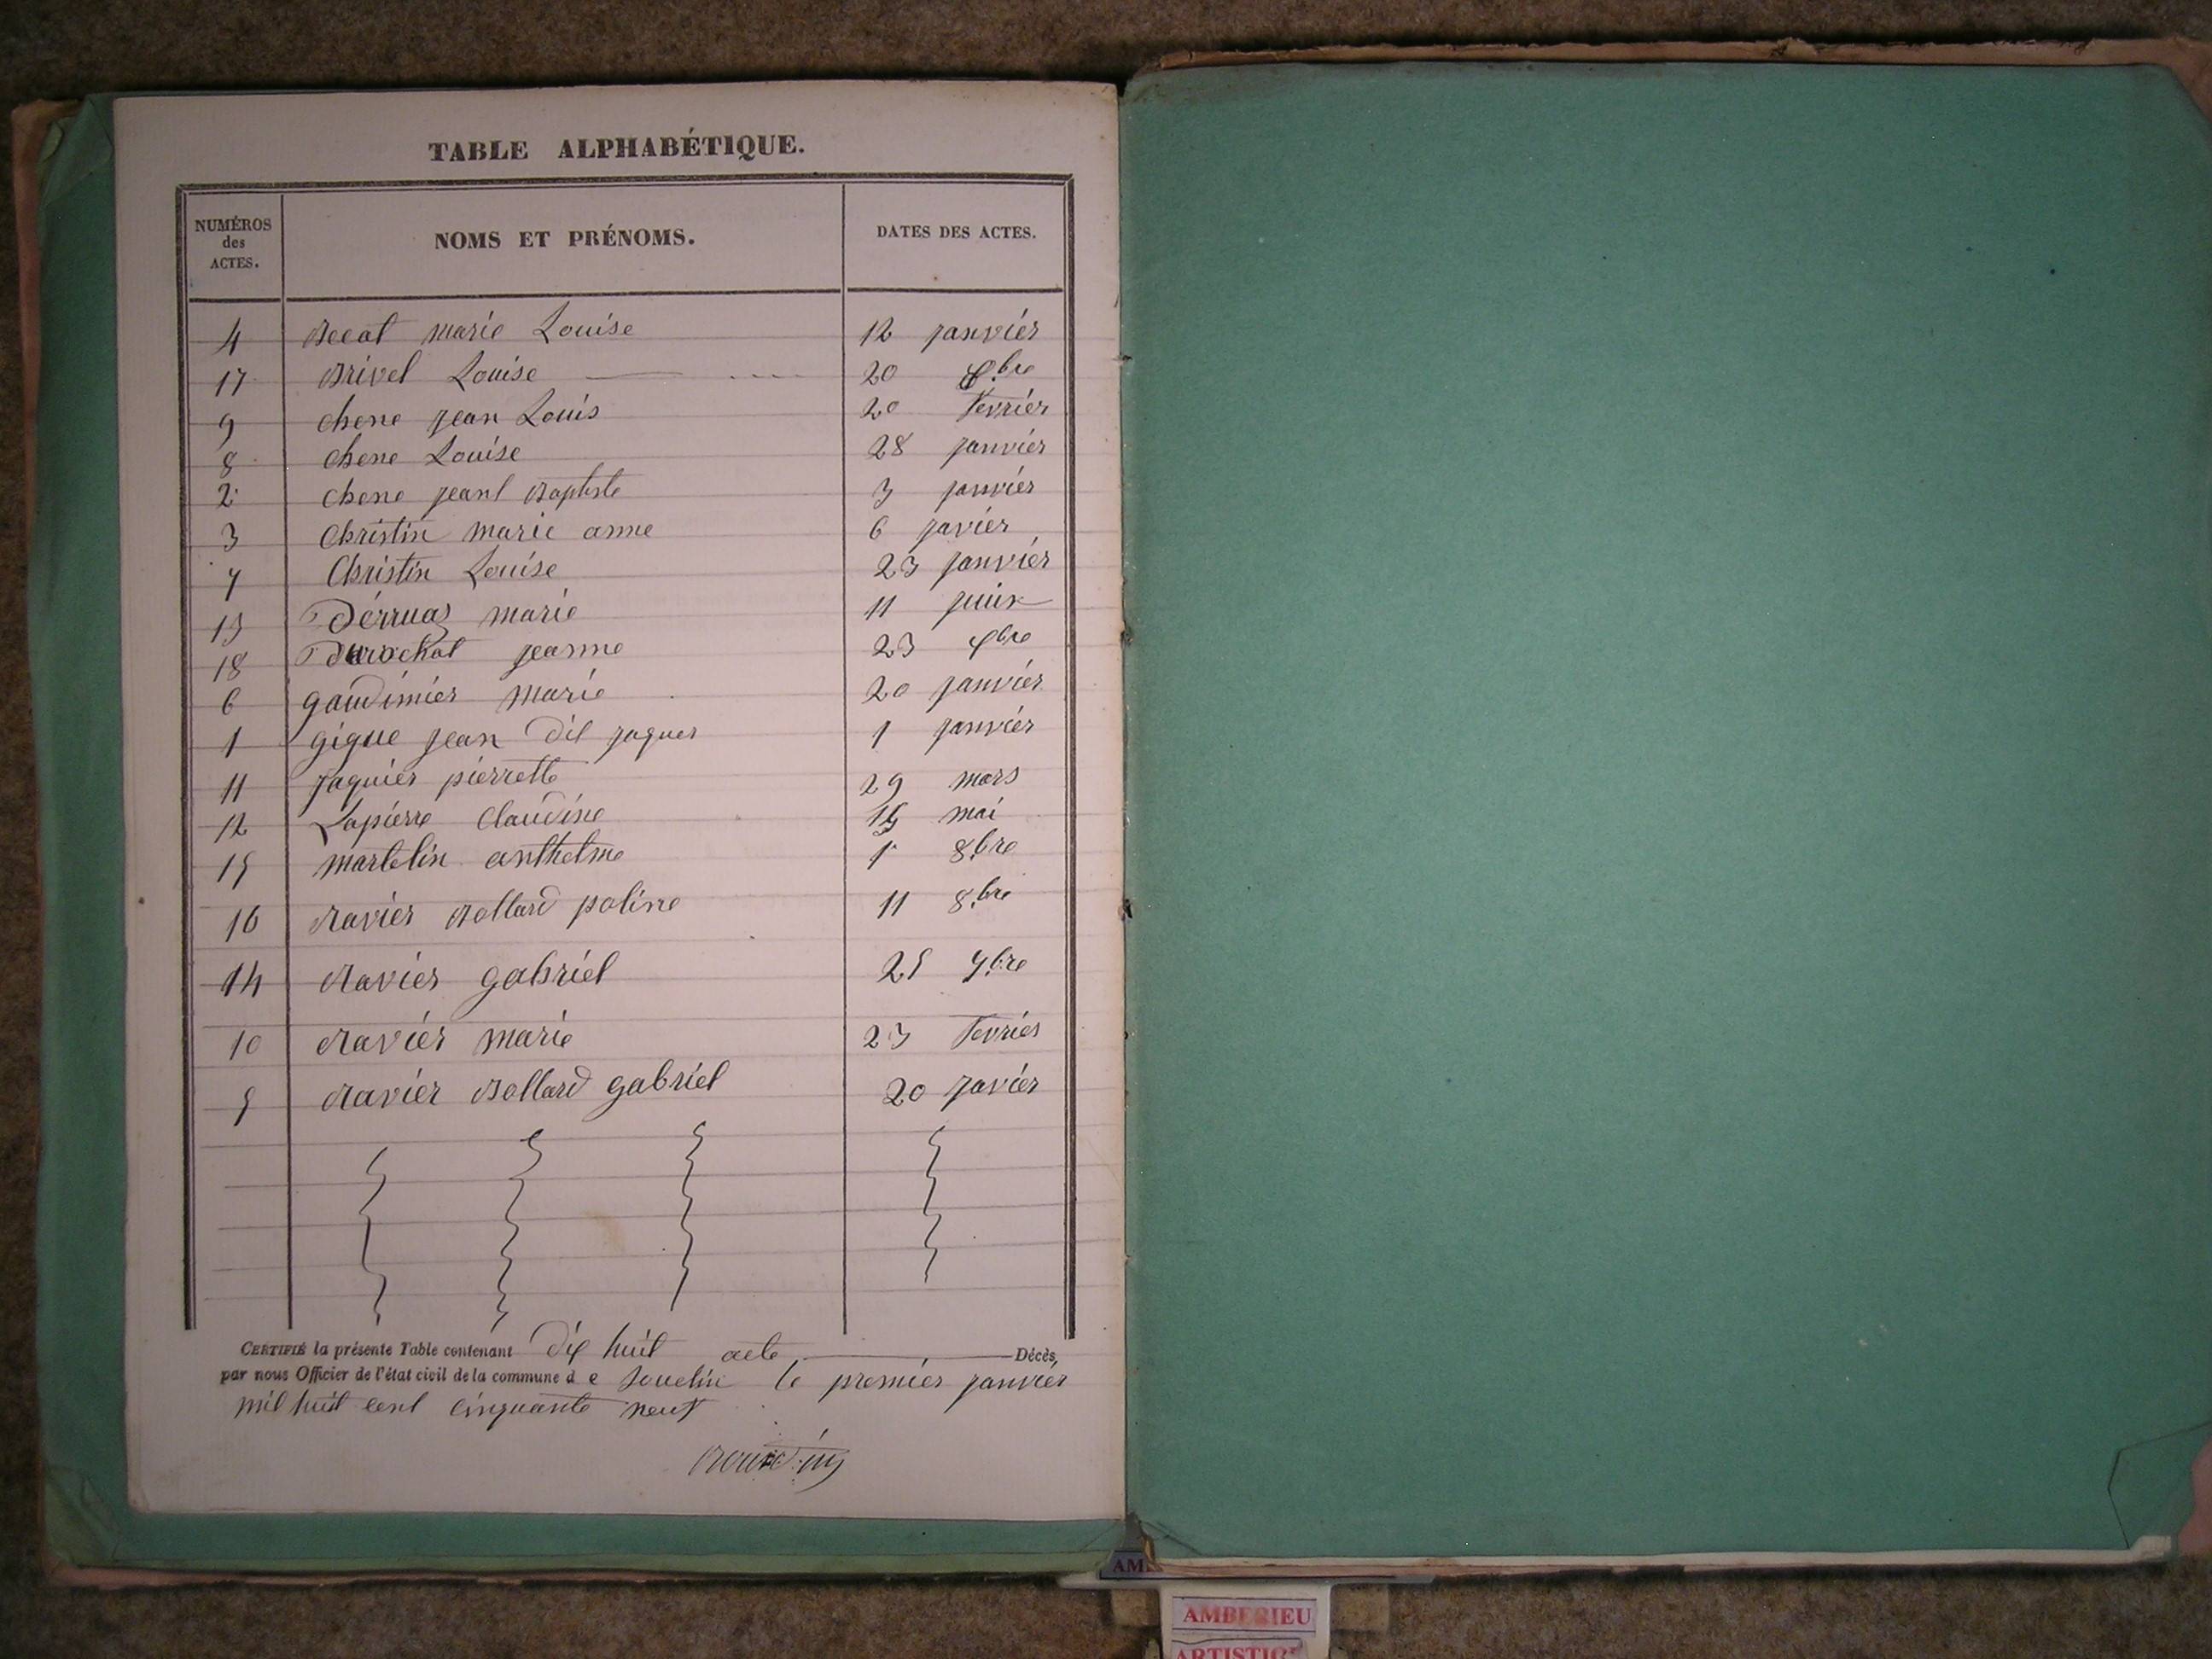 TABLE ALPHABÉTIQUE.
NUMÉROS des ACTES. NOMS ET PRÉNOMS. DATES DES ACTES.
4 Becat marie Louise 12 janvier
17 Brivel Louise 20 9.bre
9 chene jean Louis 20 fevrier
8 chene Louise 28 janvier
2 chene jeant Baptiste 3 janvier
3 Christin marie anne 6 javier
7 Christin Louise 23 janvier
13 Dérruaz marie 11 juin
18 Durochat jeanne 23 9bre
6 gaudimier marie 20 janvier
1 gigue jean dit jaques 1 janvier
11 jaquier pierrette 29 mars
12 Lapierre Claudine 15 mai
15 martelin anthelme 1 8.bre
16 Ravier Bollard poline 11 8.bre
14 Ravier gabriel 25 7.bre
10 Ravier marie 23 fevrier
5 Ravier Bollard gabriel 20 javier
CERTIFIÉ la présente Table contenant dix huit acte Décès,
par nous Officier de l'état civil de la commune d e Souclin le premier janvier
mil huit cent cinquante neuf
AMBERIEU